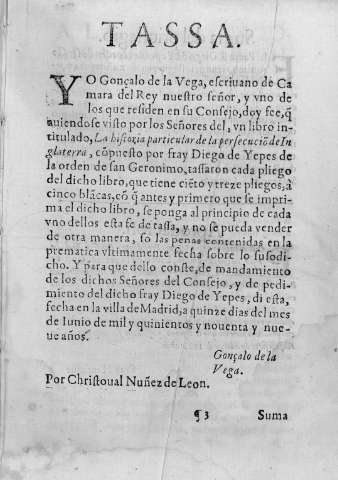 TASSA.
YO Gonçalo de la Vega, escriuano de Ca
mara del Rey nuestro señor, y vno de
los que residen en su Consejo, doy fee, q̃
auiendose visto por los Señores del, vn libro in-
titulado, La historia particular de la persecuciõ de In
glaterra, cõpuesto por fray Diego de Yepes de
la orden de san Geronimo, tassaron cada pliego
del dicho libro, que tiene ciẽto y treze pliegos, á
cinco blãcas, cõ q̃ antes y primero que se impri-
ma el dicho libro, se ponga al principio de cada
vno dellos esta fe de tassa, y no se pueda vender
de otra manera, so las penas contenidas en la
prematica vltimamente fecha sobre lo susodi-
cho. Y para que dello conste, de mandamiento
de los dichos Señores del Consejo, y de pedi-
miento del dicho fray Diego de Yepes, di esta,
fecha en la villa de Madrid, a quinze dias del mes
de Iunio de mil y quinientos y nouenta y nue-
ue años.
Gonçalo de la
Vega.
Por Christoual Nuñez de Leon.
¶ 3 Suma